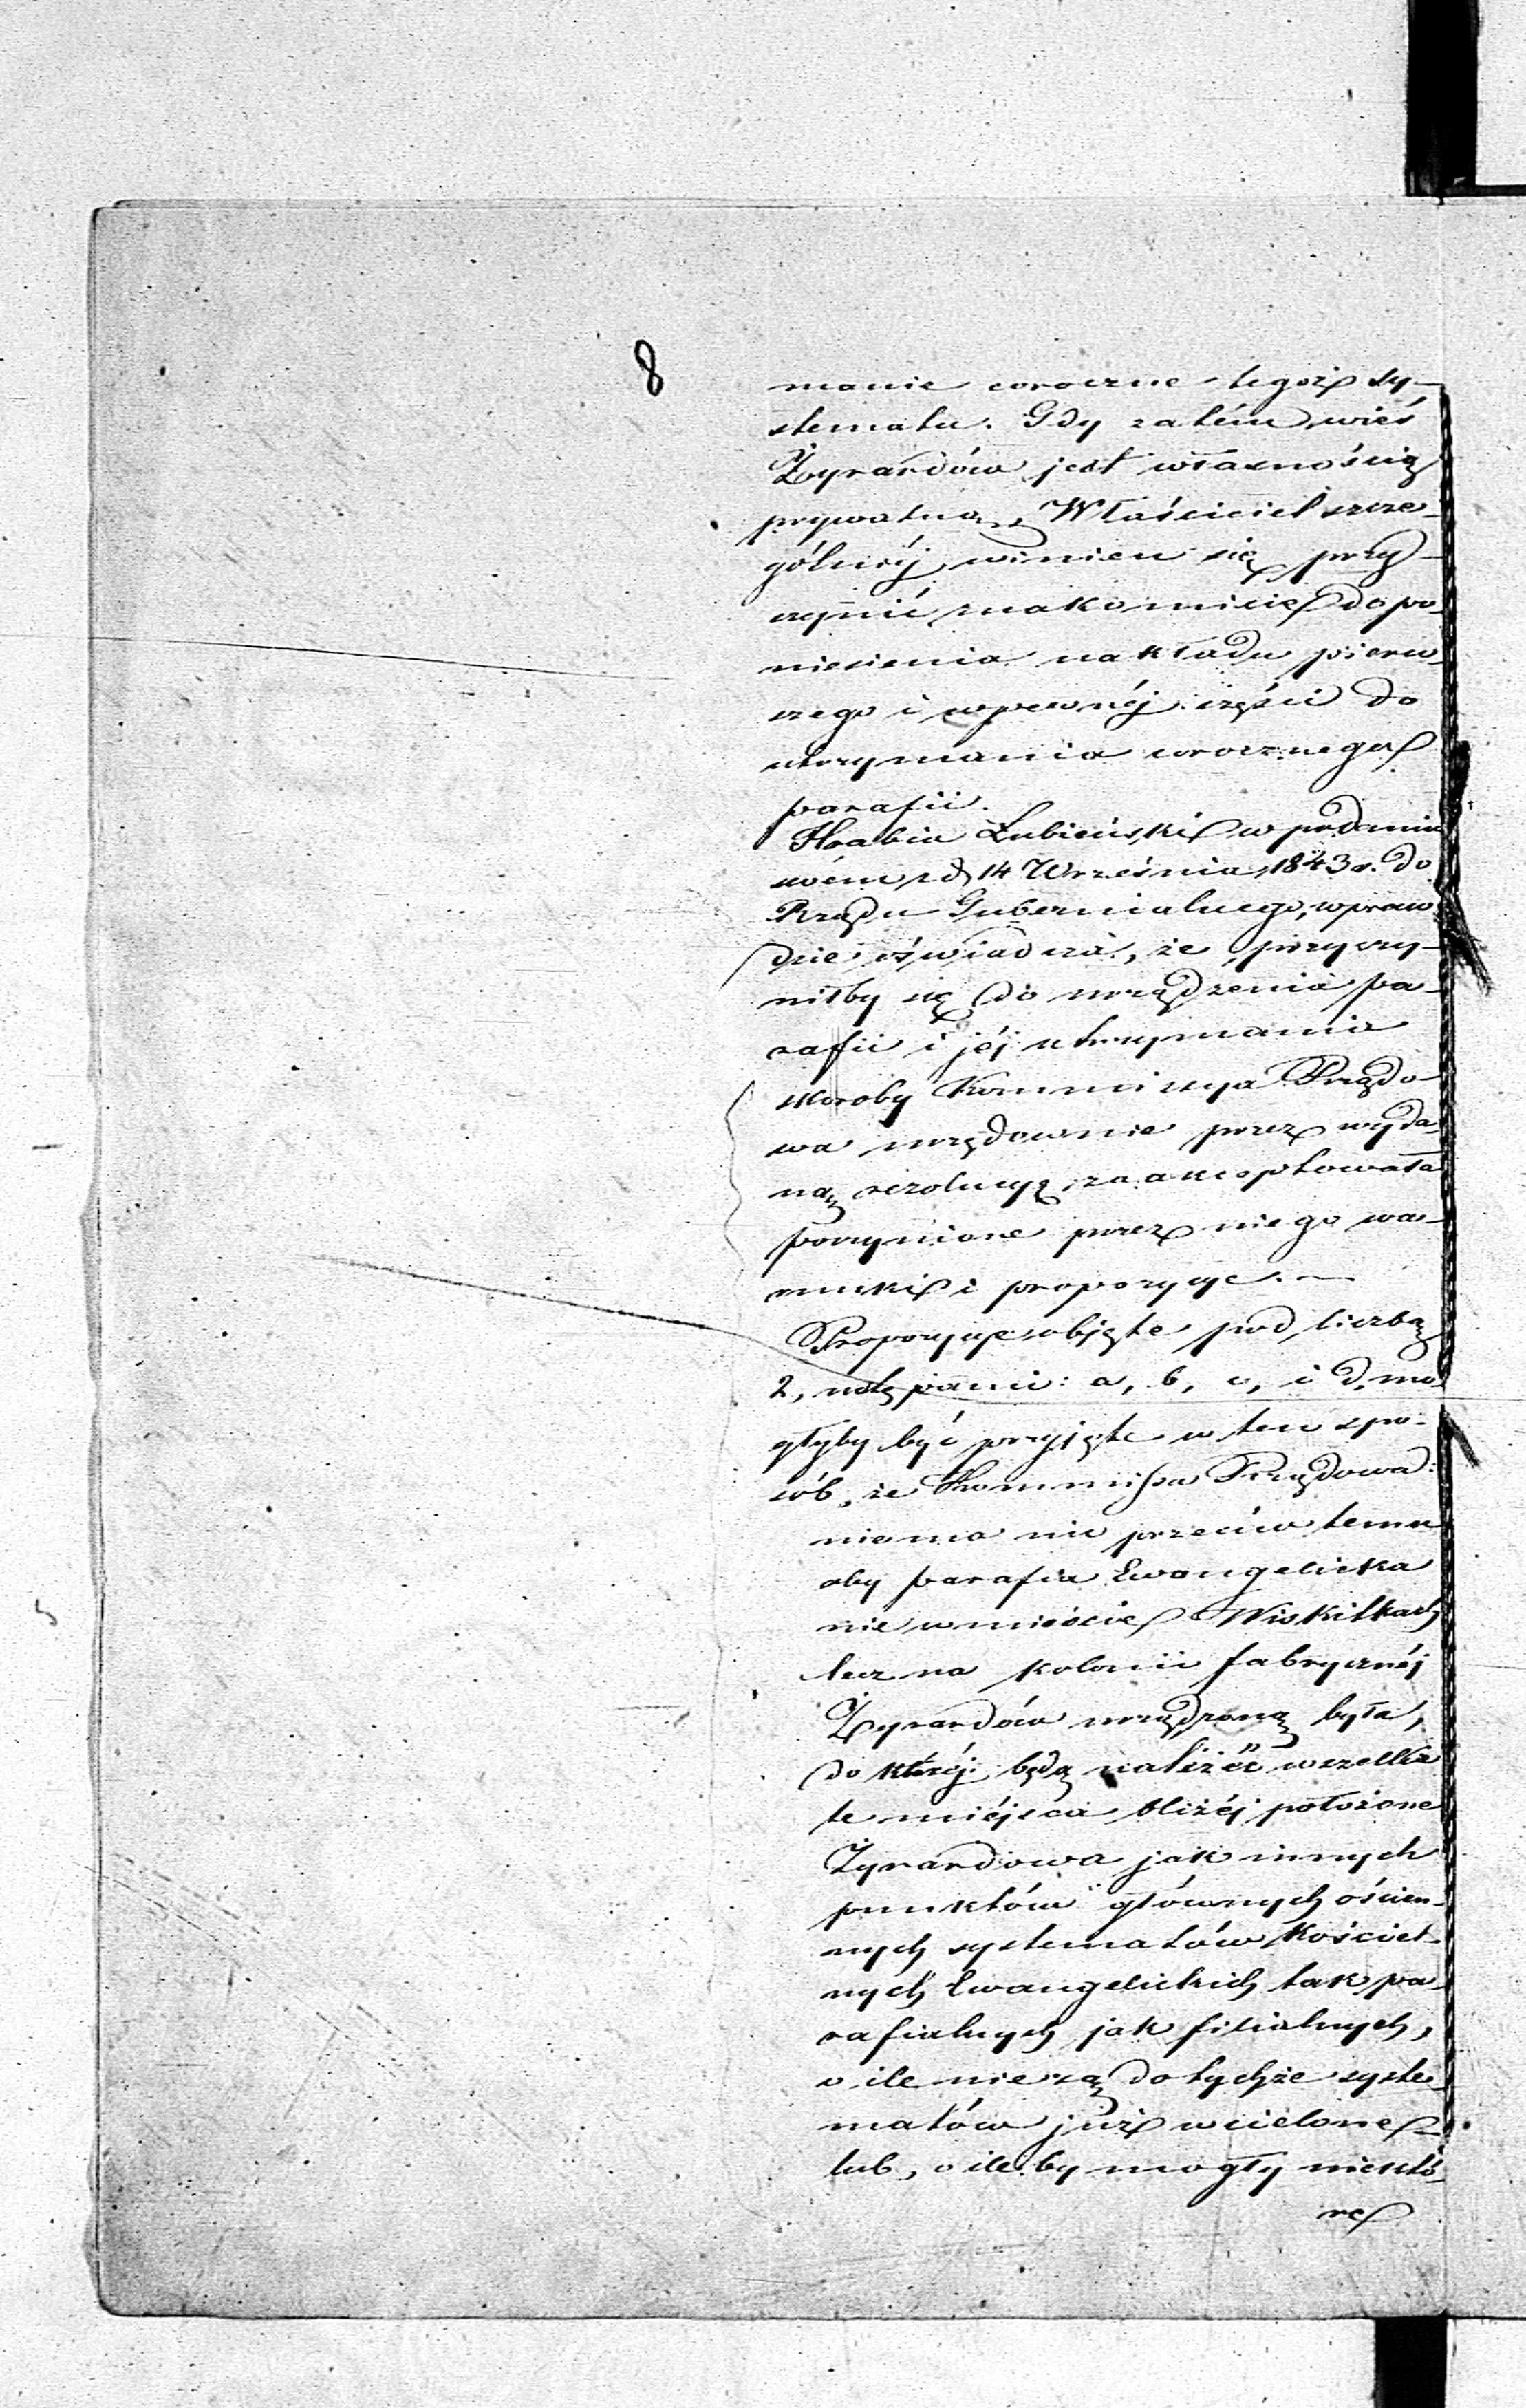 8
manie coroczne tegoż sy-
stematu. Gdy zatém wieś
Żyrardów jest własnością
prywatną, Właściciel szcze-
gólniéj winien się przy-
czynić znakomicie do po-
niesienia nakładu pierw-
szego i w pewnéj części do
utrzymania corocznego
parafii.
Hrabia Łubieński w podaniu
swém z d. 14 Września 1843 r. do
Rządu Gubernialnego, wpraw-
dzie oświadcza, że przyczy-
niłby się do urządzenia pa-
rafii i jéj utrzymania
skoroby Kommissya Rządo-
wa urzędownie przez wyda-
ną rezolucyę zaakceptowała
poczynione przez niego wa-
runki i propozycye. —
Propozycye objęte pod liczbą
2, ustępami: a, b, c, i d, mo-
głyby być przyjęte w ten spo-
sób, że Kommissya Rządowa:
niema nic przeciw temu
aby parafia Ewangelicka
nie w mieście Wiskitkach
lecz na kolonii fabrycznéj
Żyrardów urządzoną była,
do któréj będą należéć wszelkie
te miéjsca bliżéj położone
Żyrardowa jak innych
punktów głównych ościen-
nych systematów Kościel-
nych Ewangelickich tak pa-
rafialnych jak filialnych,
o ile nie są do tychże syste-
matów już wcielone
lub, o ile by mogły niektó-
re